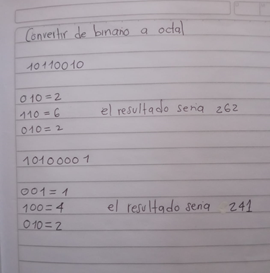 Convertir de binario a octal
10110010
010=2
110=6 el resultado seria 262
010=2
10100001
001=1
100=4 el resultado seria 241
010=2